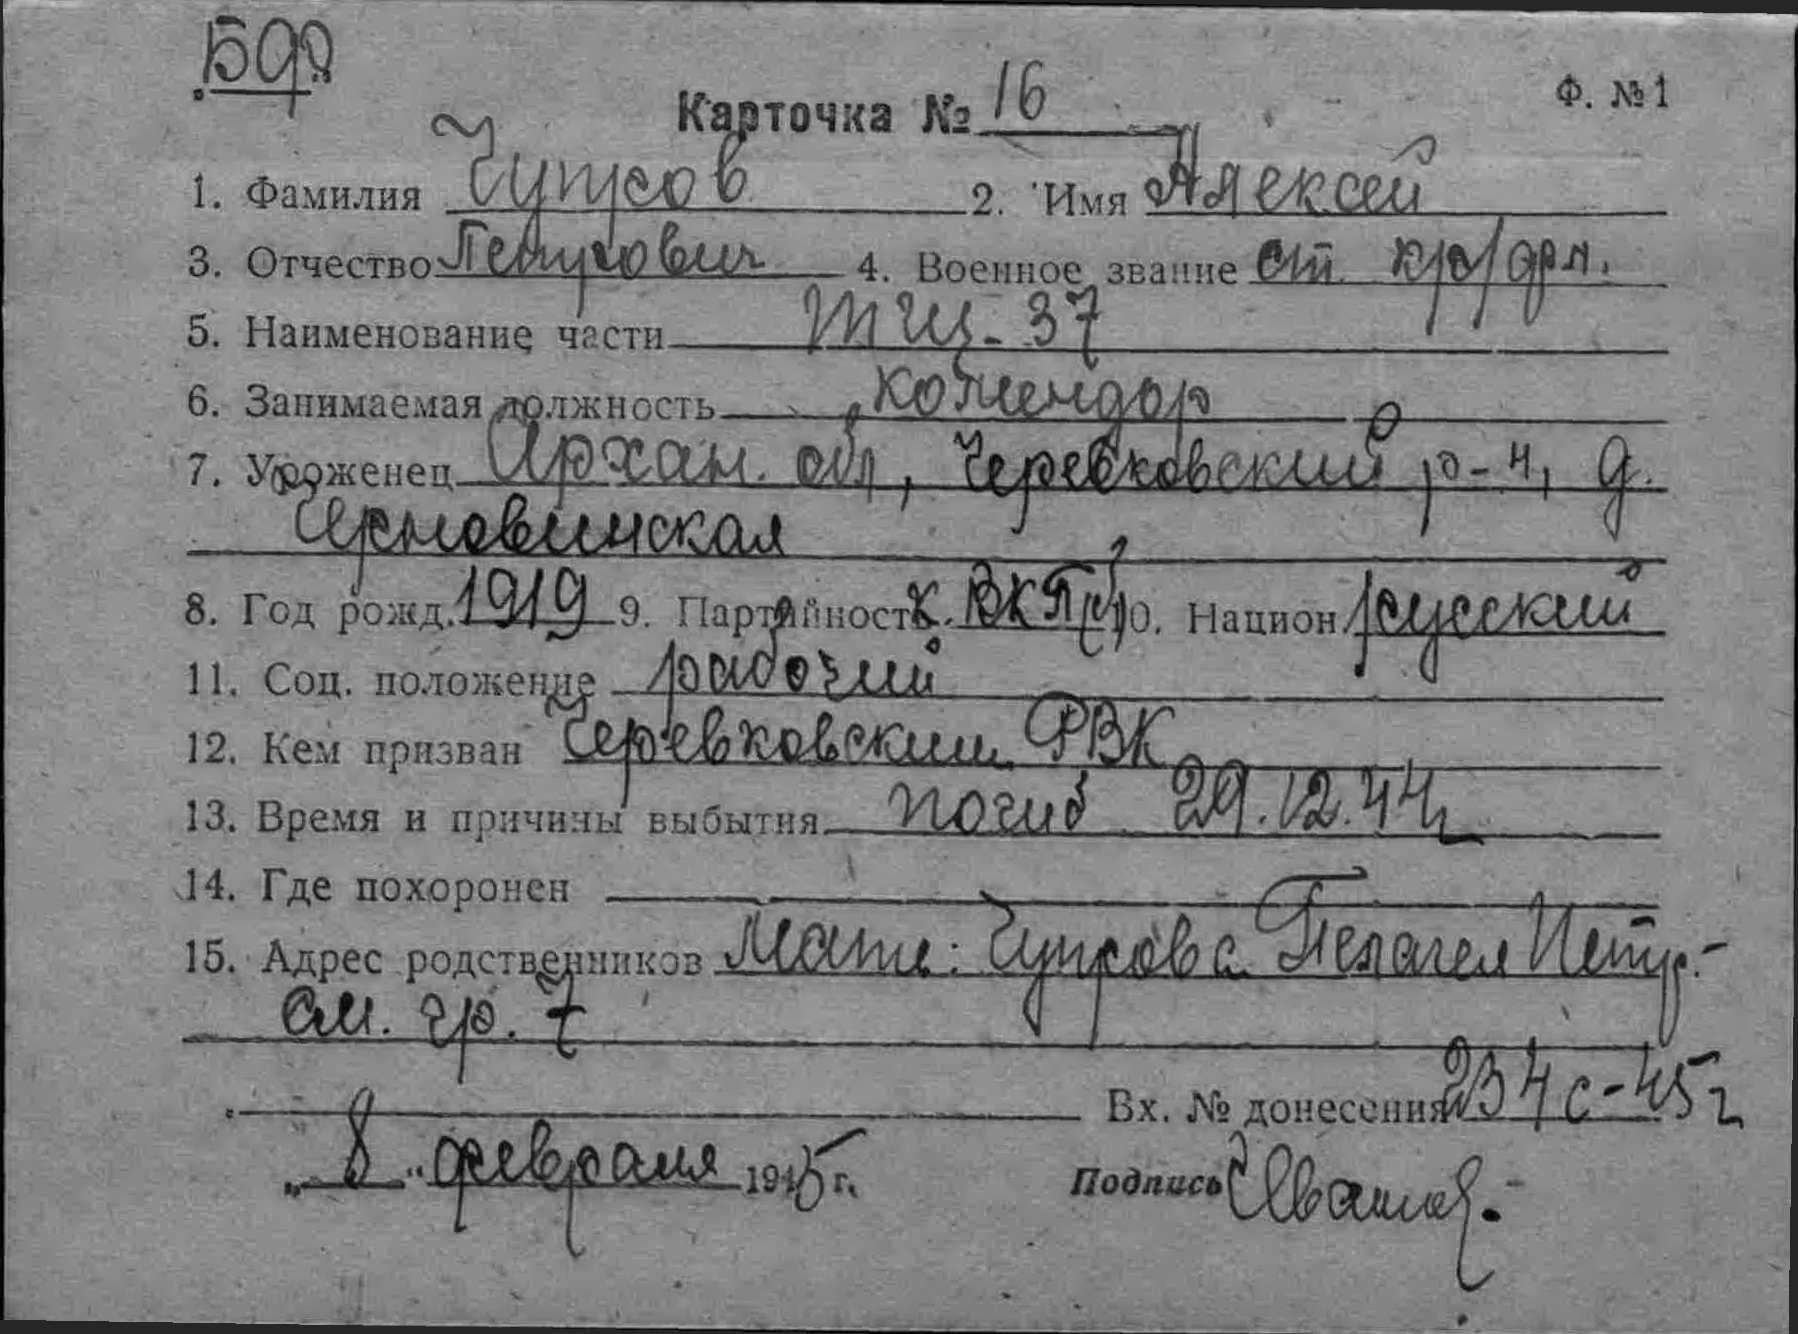 БФ
Карточка № 16
Ф. № 1
1. Фамилия Чупров 2. Имя Алексей
3. Отчество Петрович 4. Военное звание ст. кр/фл.
5. Наименование части ТЩ-37
6. Занимаемая должность комендор
7. УроженецАрхан. обл, Черевковский р-н, д.
Черновинская
8. Год рожд. 1919 9. Партийность к. ВКП(б) 10. Национ. русский
11. Соц. положение рабочий
12. Кем призван Черевковский РВК
13. Время и причины выбытия погиб 29.12.44
14. Где похоронен
15. Адрес родственников Мать: Чупрова Пелагея Петр.-
См. гр. 7
Вх. № донесения 234с-45г
„ 8 " февраля 1945 г.
Подпись